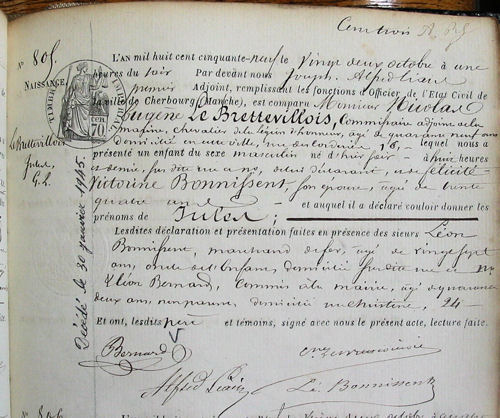 N° 805
NAISSANCE.
Le Brettevillois
Jules
TIMBRE IMPERIAL
70
L'AN mil huit cent cinquante-neuf le vingt deux octobre à une
heures du soir Par devant nous Joseph Alfred Liais
premier Adjoint, remplissant les fonctions d'Officier de l'Etat Civil de
la ville de Cherbourg (Manche), est comparu Monsieur Nicolas
Eugène Le Brettevillois, Commissaire adjoint de la
marine, chevalier de la légion d'honneur, âgé de quarante neuf ans
domicilié en cette ville, rue 18, lequel nous a
présenté un enfant du sexe masculin né d'hier soir à huit heures
et demie, sur dite rue et n°, de lui déclarant, et de Félicité
Victorine Bonnissent, son épouse, âgée de trente
quatre ans et auquel il a déclaré vouloir donner les
prénoms de Jules;
Lesdites déclaration et présentation faites en présence des sieurs Léon
Bonnissent, marchand de fer, âgé de vingt sept
ans, oncle de l'Enfant, domicilié susdite rue et n°
& Léon Bernard, Commis à la mairie, âgé de quarante
deux ans, non parent, domicilié rue Christine, 24
Et ont, lesdits père et témoins, signé avec nous le présent acte, lecture faite.
Bernard
Alfred Liais
Lé. Bonnissent
Décédé le 30 janvier 1945.